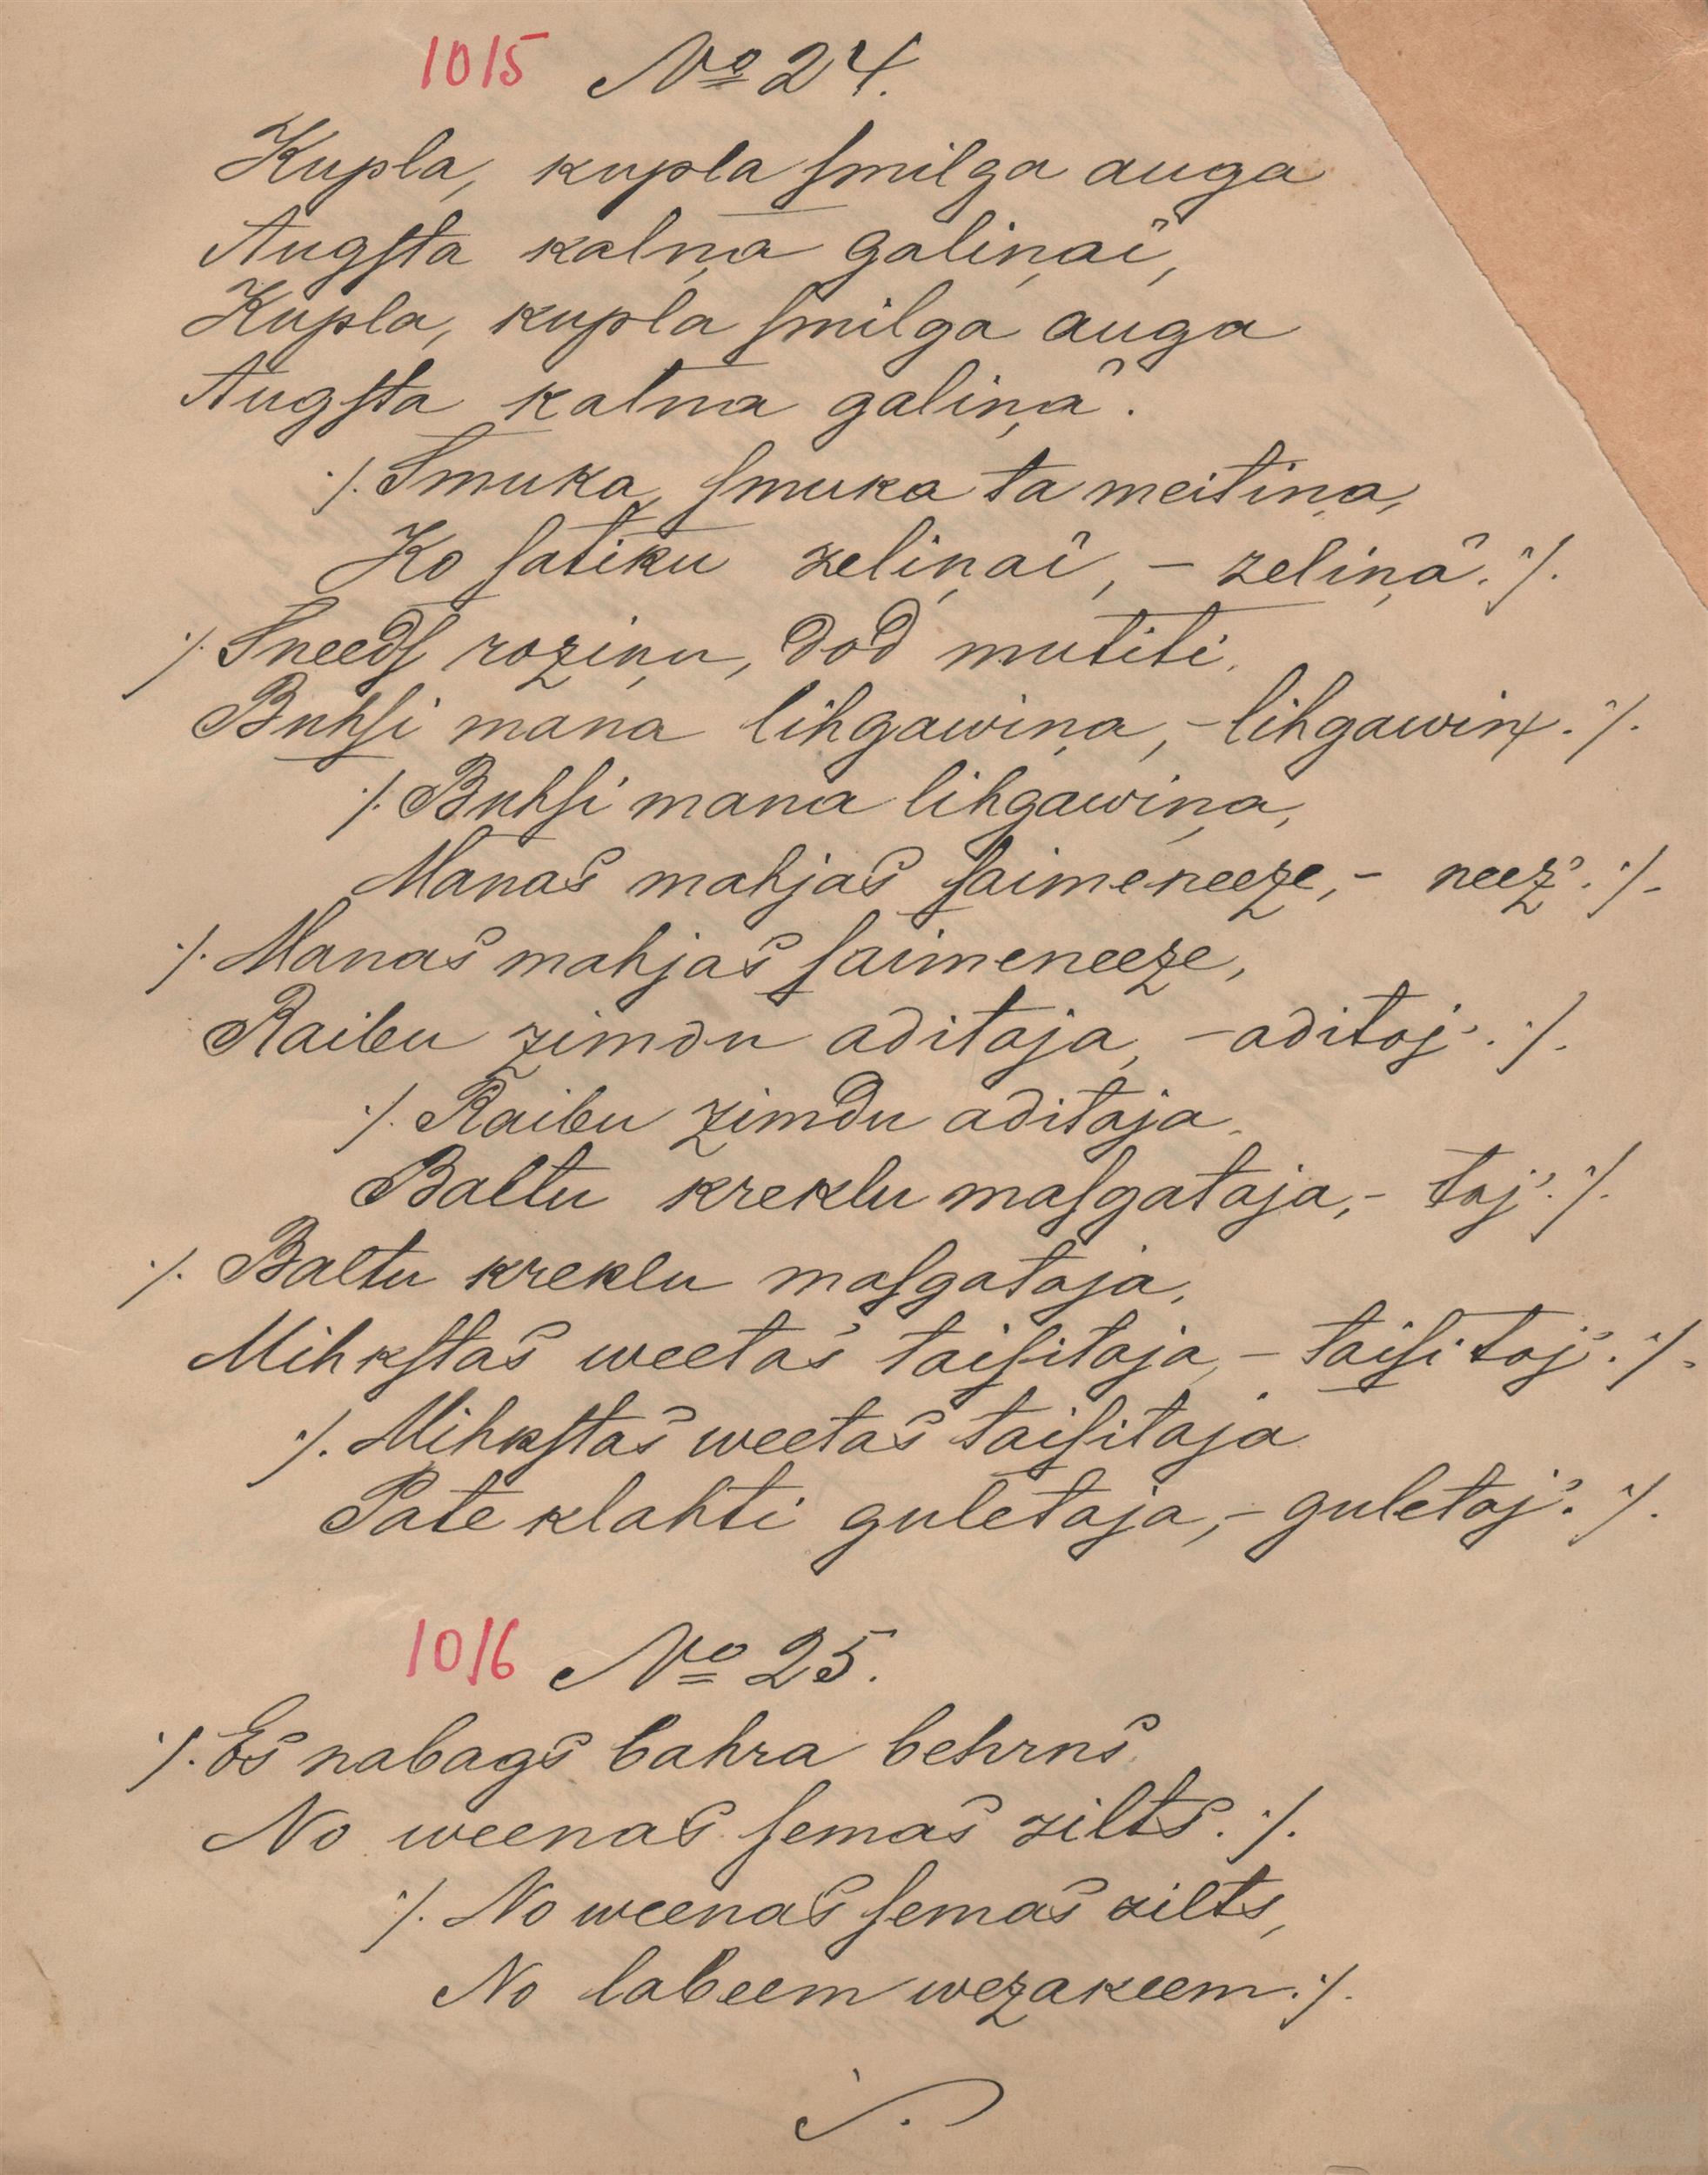 1015 № 24.
Kupla, kupla ſmilga auga
Augſta kalņa galiņai,
Kupla, kupla ſmilga auga
Augſta kalna galiņâ.
·/. Smuka, ſmuka ta meitiņa,
Ko ſatiku zeliņai, – zeliņâ. ·/.
·/. Sneedſ roziņu, dod mutiti,
Buhſi mana lihgawiņa, – lihgawiņ. ·/.
·/. Buhſi mana lihgawiņa,
Manas mahjas ſaimeneeze, – neez'. ·/.
·/. Manas mahjas ſaimeneeze,
Raibu zimdu aditaja, – aditaj'. ·/.
·/. Raibu zimdu aditaja
Baltu kreklu maſgataja, – taj'. ·/.
·/. Baltu kreklu maſgataja,
Mihkſtas weetas taiſitaja, – taiſitaj'. ·/.
·/. Mihkſtas weetas taiſitaja
Pate klahti guletaja, – guletaj'. ·/.
1016 № 25.
·/. Es nabags bahra behrns
No weenas ſemas zilts. ·/.
·/. No weenas ſemas zilts,
No labeem wezakeem ·/.